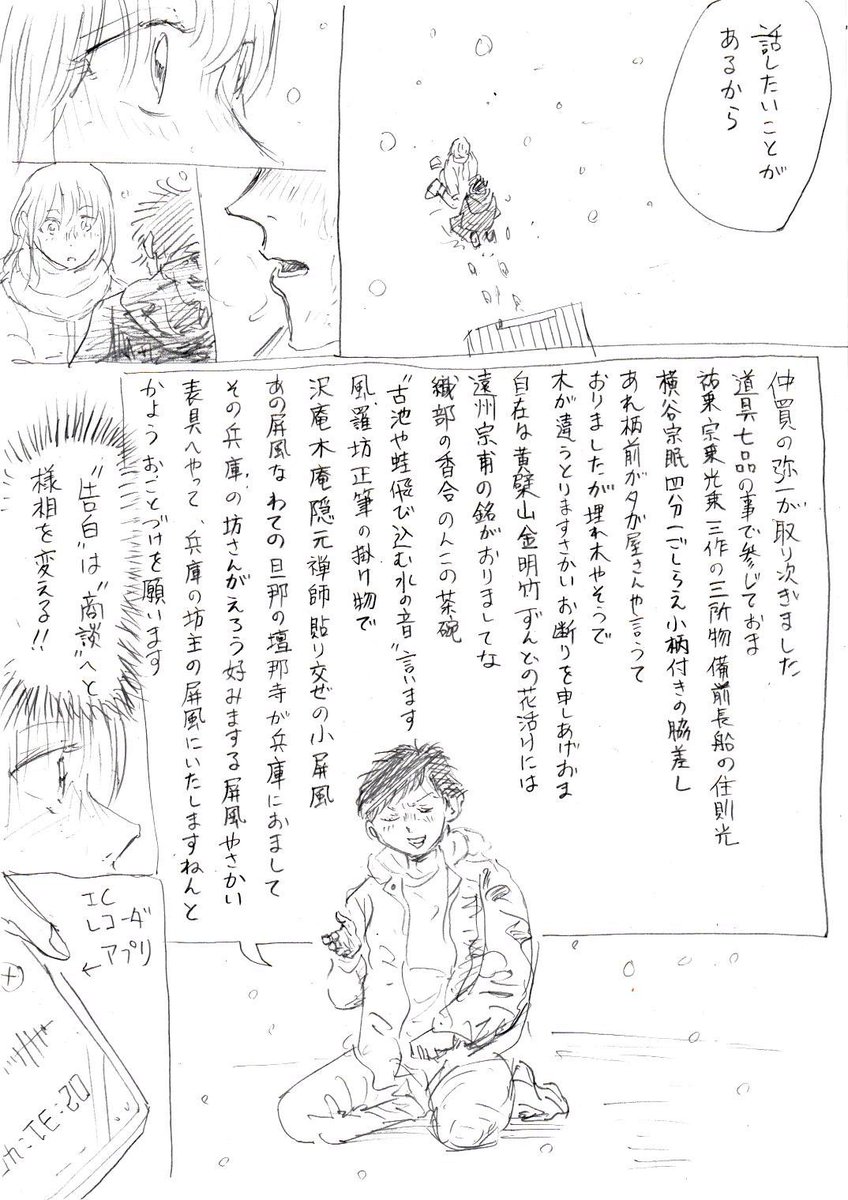 話したいことが
あるから
仲買の弥一が取り次ぎました
道具七品の事で参じておま
祐乗宗乗光乗三作の三所物備前長船の住則光
横谷宗眠四分一ごしらえ小柄付きの脇差し
あれ柄前がタガ屋さんや言うて
おりましたが埋れ木やそうで
木が違うとりますさかいお断りを申しあげおま
自在な黄檗山金明竹ずんどの花活けには
遠州宗甫の銘がおりましてな
織部の香合のんこの茶碗
"古池や蛙飛び込む水の音"言います
風羅坊正筆の掛け物で
沢庵木庵隠元禅師貼り交ぜの小屏風
あの屏風なわての旦那の壇那寺が兵庫におまして
その兵庫の坊さんがえろう好みまする屏風やさかい
表具へやって、兵庫の坊主の屏風にいたしますねんと
かようおことづけを願います
"告白"は"商談"へと
様相を変える!!
IC
レコーダ
アプリ
←